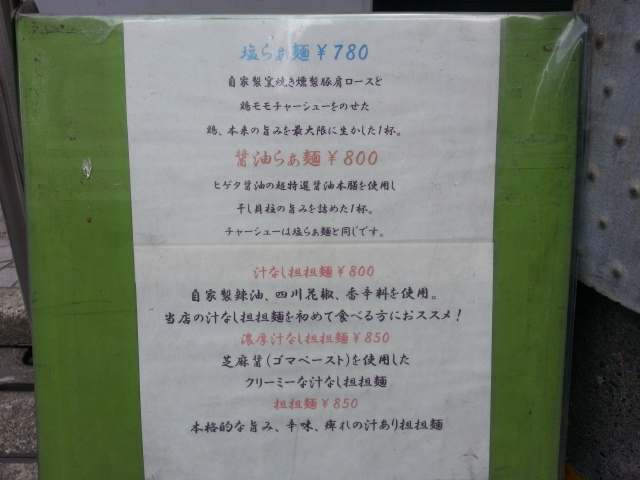 塩らぁ麺￥780
自家製窯焼き燻製豚肩ロースと
鶏モモチャーシューをのせた
鶏、本来の旨みを最大限に生かした1杯。
醤油らぁ麺￥800
ヒゲタ醤油の超特選醤油本膳を使用し
干し貝柱の旨みを詰めた1杯。
チャーシューは塩らぁ麺と同じです。
汁なし担担麺￥800
自家製辣油、四川花椒、香辛料を使用。
当店の汁なし担担麺を初めて食べる方におススメ！
濃厚汁なし担担麺￥850
芝麻醤（ゴマペースト）を使用した
クリーミーな汁なし担担麺
担担麺￥850
本格的な旨み、辛味、痺れの汁あり担担麺